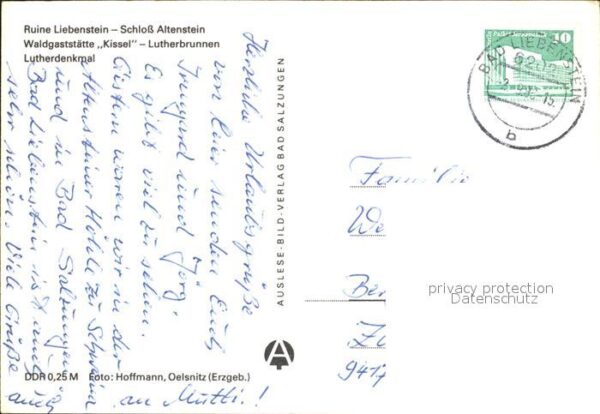 Ruine Liebenstein – Schloß Altenstein
Waldgaststätte „Kissel" – Lutherbrunnen
Lutherdenkmal
Herzliche Urlaubsgrüße
von hier senden Euch
Irmgard und Jörg.
Es gibt viel zu sehen.
Gestern waren wir in der
Altensteiner Höhle zu Schweina
und in Bad Salzungen.
Bad Liebenstein ist auch
sehr schön. Viele Grüße
auch an Mutti.!
AUSLESE-BILD-VERLAG BAD SALZUNGEN
DDR 0,25 M Foto: Hoffmann, Oelsnitz (Erzgeb.)
10
BAD LIEBENSTEIN
b
Familie
We
Ber
941
privacy protection
Datenschutz